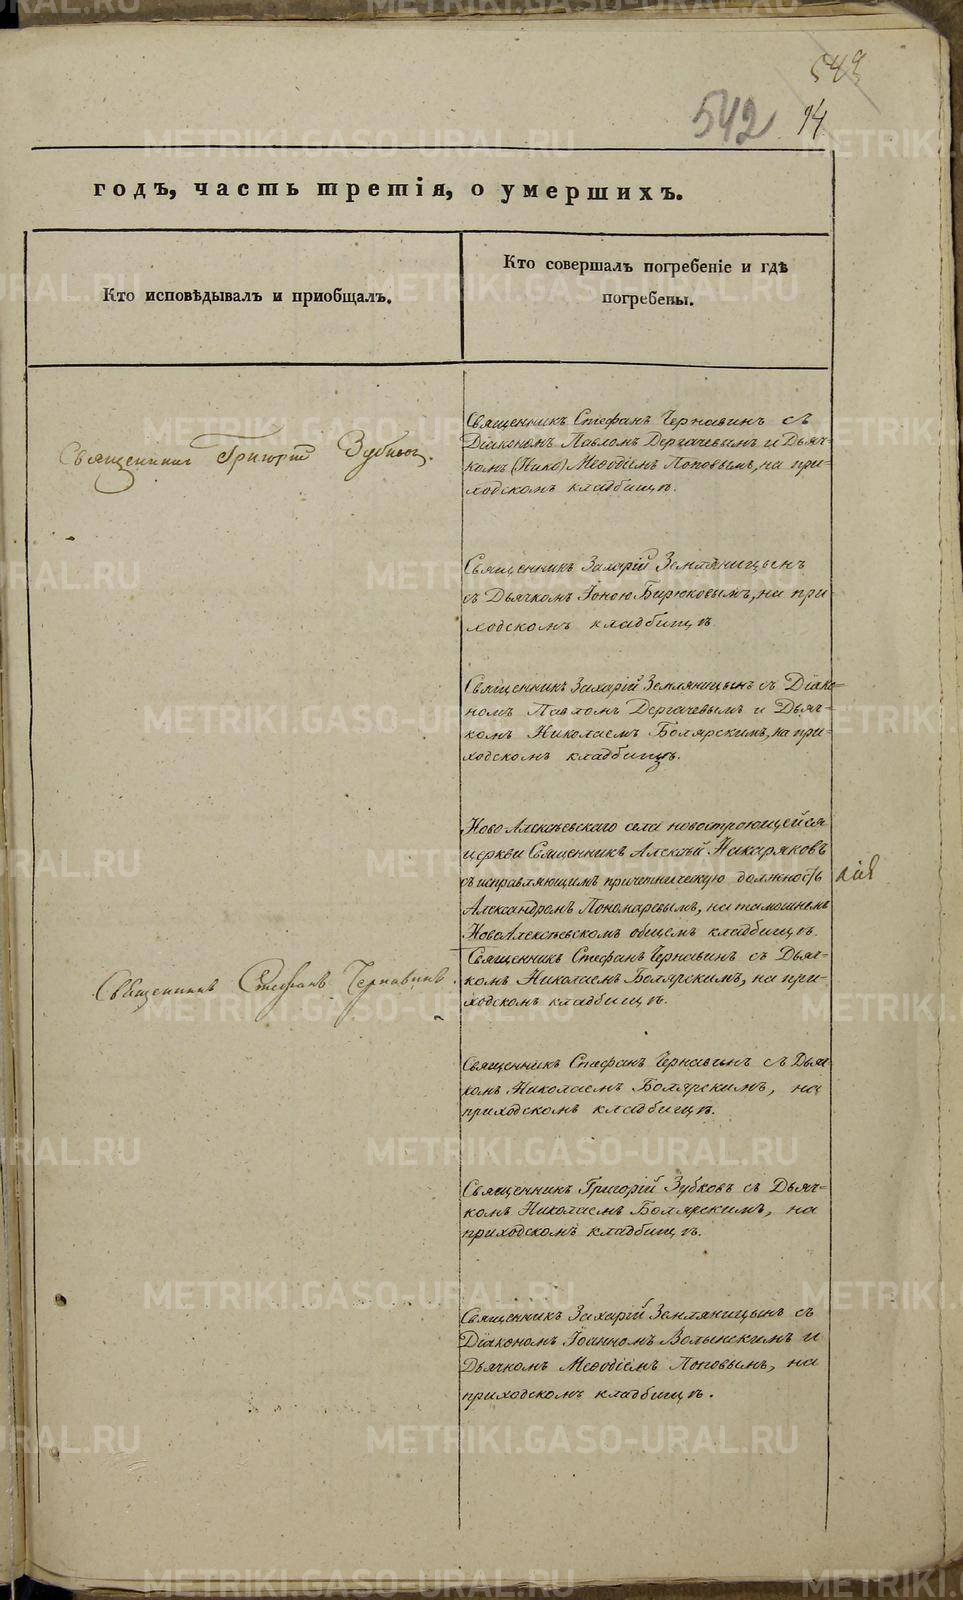 549
542 94
годъ, часть третія, о умершихъ.
Кто исповѣдывалъ и приобщалъ.
Кто совершалъ погребеніе и гдѣ
погребены.
Священникъ Григорій Зубковъ.
Священникъ Стефанъ Чернавинъ съ
Діакономъ Павломъ Дергачевымъ и Дьяч-
комъ (Нико) Меѳодіемъ Поповымъ, на при-
ходскомъ кладбищѣ.
Священникъ Захарій Земляницынъ
съ Дьячкомъ Іоною Бирюковымъ, на при-
ходскомъ кладбищѣ
Священникъ Захарій Земляницынъ съ Діако-
номъ Павломъ Дергачевымъ и Дьяч-
комъ Николаемъ Болярскимъ, на при-
ходскомъ кладбищѣ.
Ново Алексѣевскаго села новостроющейся
церкви Священникъ Алексѣй Накаряковъ
съ исправляющимъ причетническую должность
Александромъ Пономаревымъ, на тамошнемъ
НовоАлексѣевскомъ общемъ кладбищѣ.
Священникъ Стефанъ Чернавинъ.
Священникъ Стефанъ Чернавинъ съ Дьяч-
комъ Николаемъ Болярскимъ, на при-
ходскомъ кладбищѣ.
Священникъ Стефанъ Чернавинъ съ Дьяч-
комъ Николаемъ Болярскимъ, на
приходскомъ кладбищѣ.
Священникъ Григорій Зубковъ съ Дьяч-
комъ Николаемъ Болярскимъ, на
приходскомъ кладбищѣ.
Священникъ Захарій Земляницынъ съ
Діакономъ Іоанномъ Волынскимъ и
Дьячкомъ Меѳодіемъ Поповымъ, на
приходскомъ кладбищѣ.
METRIKI.GASO-URAL.RU